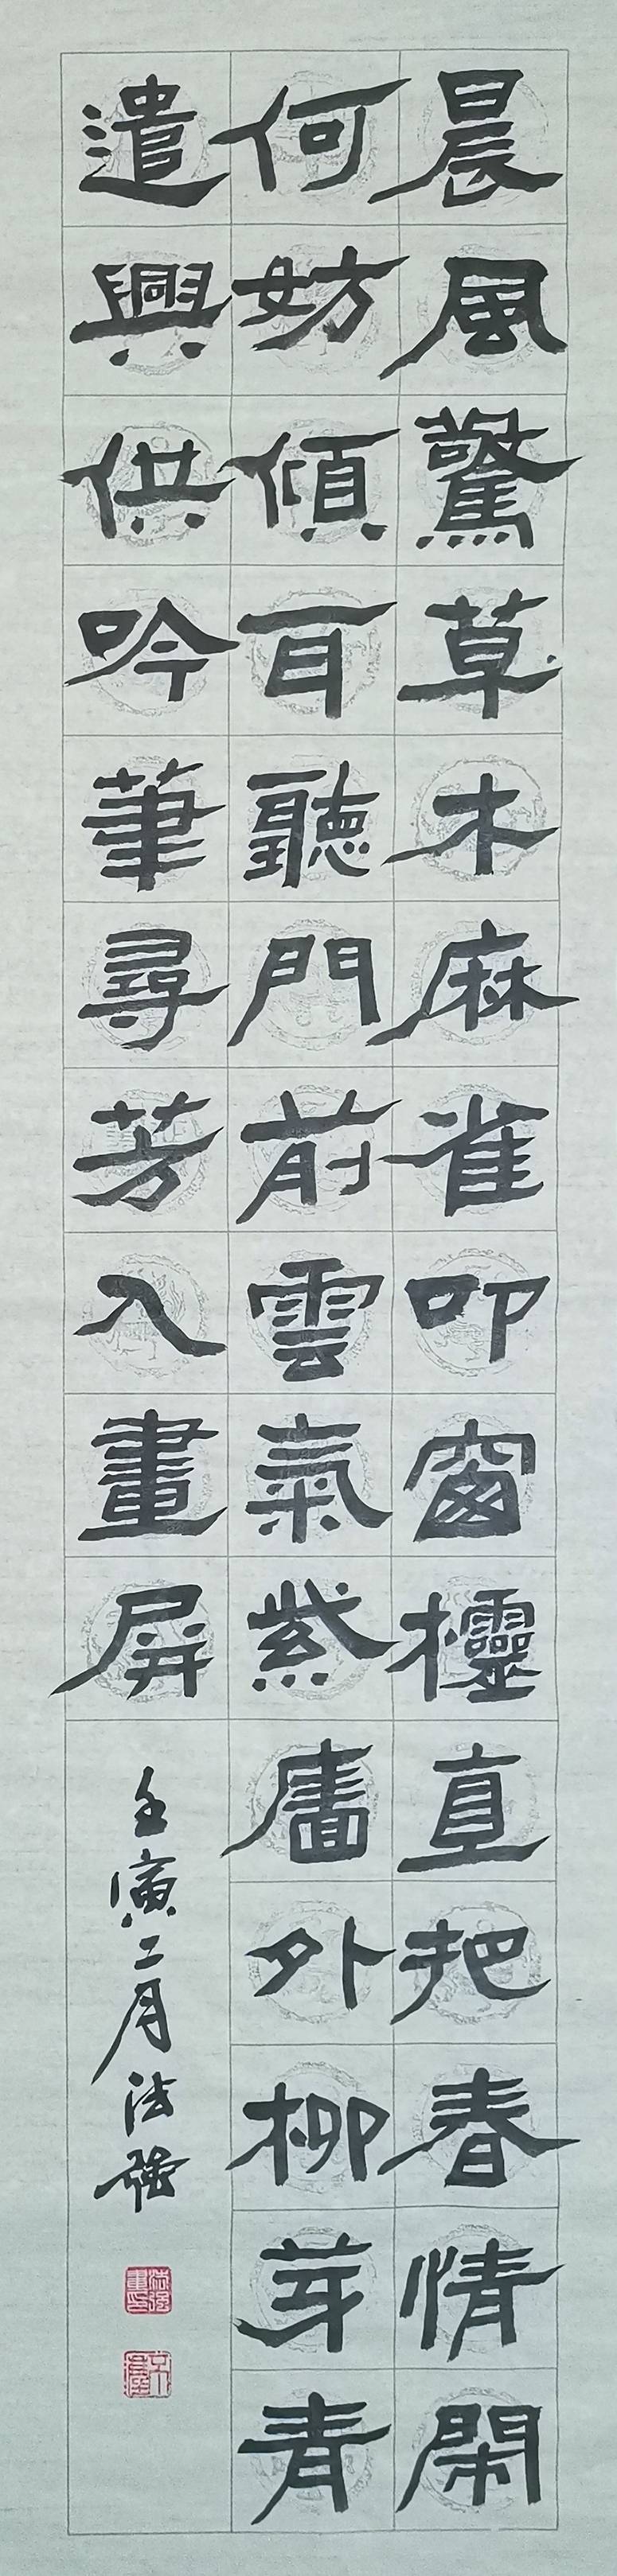 晨風驚草木麻雀叩窗欞直把春情閑
何妨傾耳聽門前雲氣紫牆外柳芽青
遣興供吟筆尋芳入畫屏
壬寅二月法強